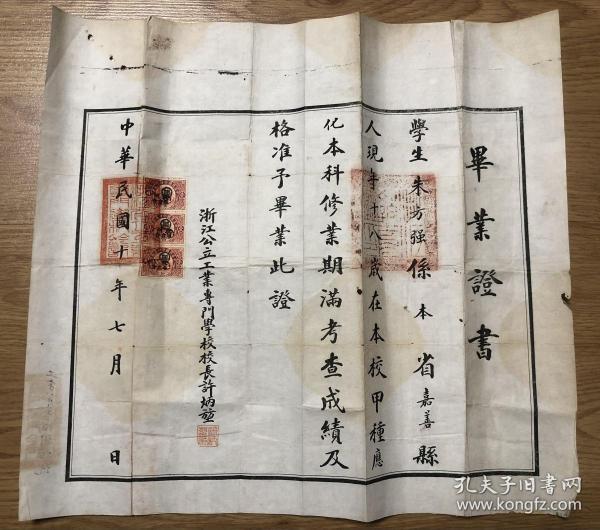 畢業證書
學生朱方强係本省嘉善縣
人現年十八歲在本校甲種應
化本科修業期滿考查成績及
格准予畢業此證
浙江公立工業專門學校校長許炳堃
中華民國十年七月 日
孔夫子旧书网
www.kongfz.com